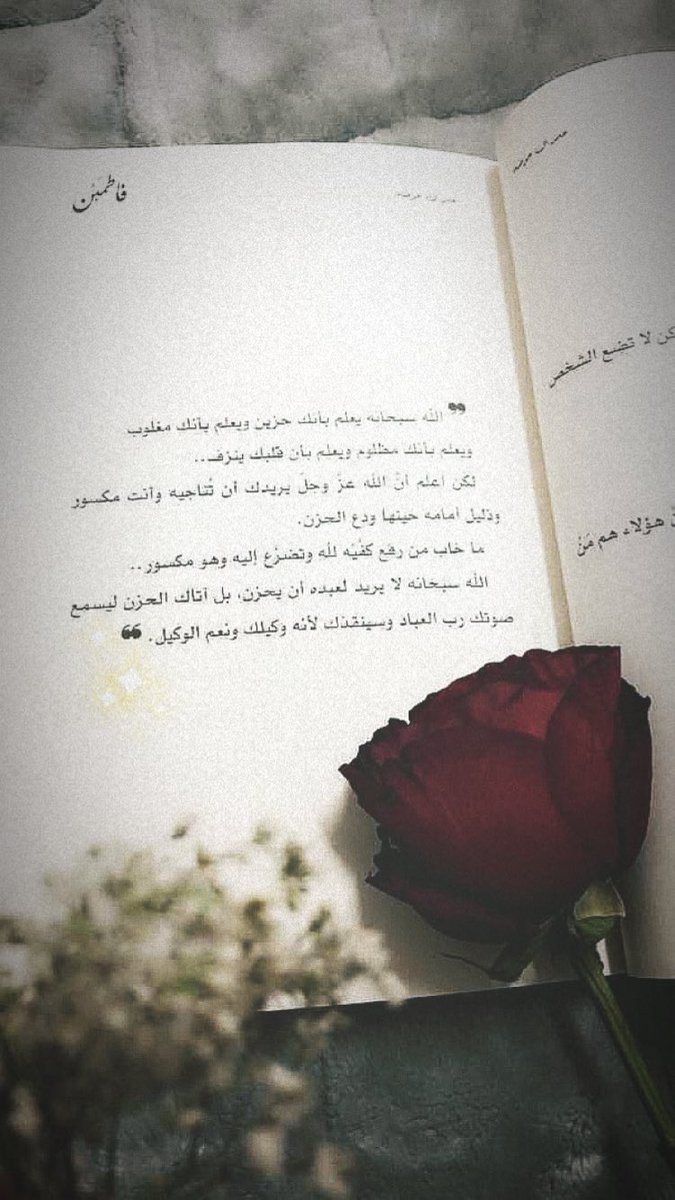 فاطمئن
❞ الله سبحانه يعلم بأنك حزين ويعلم بأنك مغلوب
ويعلم بأنك مظلوم ويعلم بأن قلبك ينزف..
لكن أعلم أنَّ الله عزَّ وجلّ يريدك أن تُناجيه وأنت مكسور
وذليل أمامه حينها ودع الحزن.
ما خاب من رفع كفَّيْه لله وتضرُّع إليه وهو مكسور..
الله سبحانه لا يريد لعبده أن يحزن، بل أتاك الحزن ليسمع
صوتك رب العباد وسينقذك لأنه وكيلك ونعم الوكيل. ❝
لا تضع الشخص
هؤلاء هم مَنْ